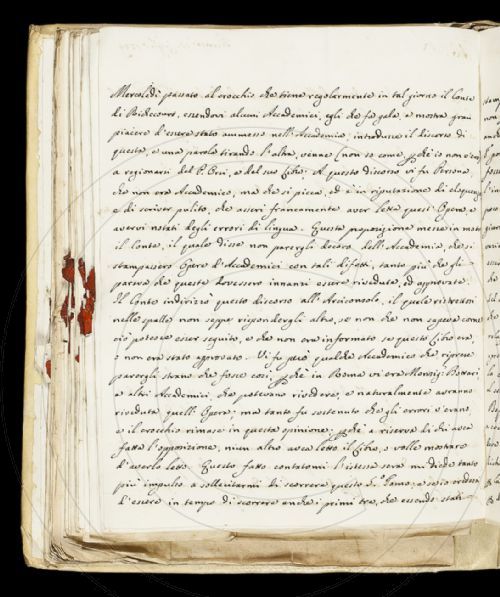 Mercoledì passato al crocchio che tiene regolarmente in tal giorno il Conte
di Bidecourt, essendovi alcuni Accademici, egli che fa gala, e mostra gran
piacere d'essere stato ammesso nell'Accademia, introdusse il discorso di
questa, e una parola tirando l'altra, venne (non so come, perchè io non v'ero)
a ragionarsi del P. e del suo libro. A questo discorso vi fu Persona,
che non era Accademico, ma che si picca, ed è in riputazione di eloquenza
e di scriver pulito, che asserì francamente aver letta quest'Opera, e
avervi notati degli errori di lingua. Questa proposizione messe in moto
il Conte, il quale disse non parergli decoro dell'Accademia, che si
stampassero Opere d'Accademici con tali difetti, tanto più che gli
pareva che queste dovessero innanzi essere rivedute, ed approvate.
Il Conte indirizzò questo discorso all'Arciconsolo, il quale ristrettosi
nelle spalle non seppe rispondergli altro, se non che non sapeva come
ciò potesse esser seguito, e che non era informato se questo libro era,
o non era stato approvato. Vi fu però qualche Accademico che riprese
parergli strano che fosse così, perchè in Roma vi era Monsig: Bottari,
e altri Accademici, che potevano rivedere, e naturalmente avranno
riveduta quest'Opera; ma tanto fu sostenuto che gli errori v'erano,
e il crocchio rimase in questa opinione; perchè a riserva di chi aveva
fatta l'opposizione, niun altro avea letto il libro, o volle mostrare
d'averlo letto. Questo fatto contatomi l'istessa sera mi diede tanto
più impulso a sollecitarmi di scorrere questo Tomo; e
l'essere in tempo di scorrere anche i primi tre, che essendo stati